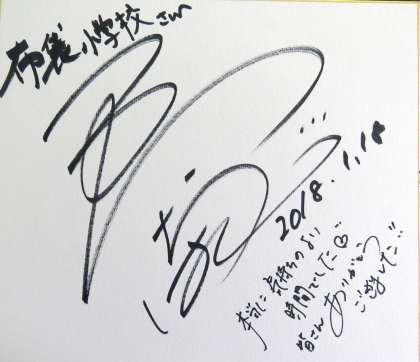 布袋小学校さん
2018.1.18
本当に気持ちのよい
時間でした
皆さんありがとう
ございました…